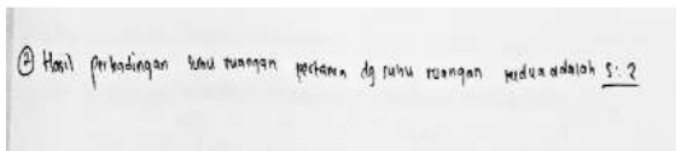 ② Hasil perbadingan suhu ruangan pertama dg suhu ruangan kedua adalah 5:2